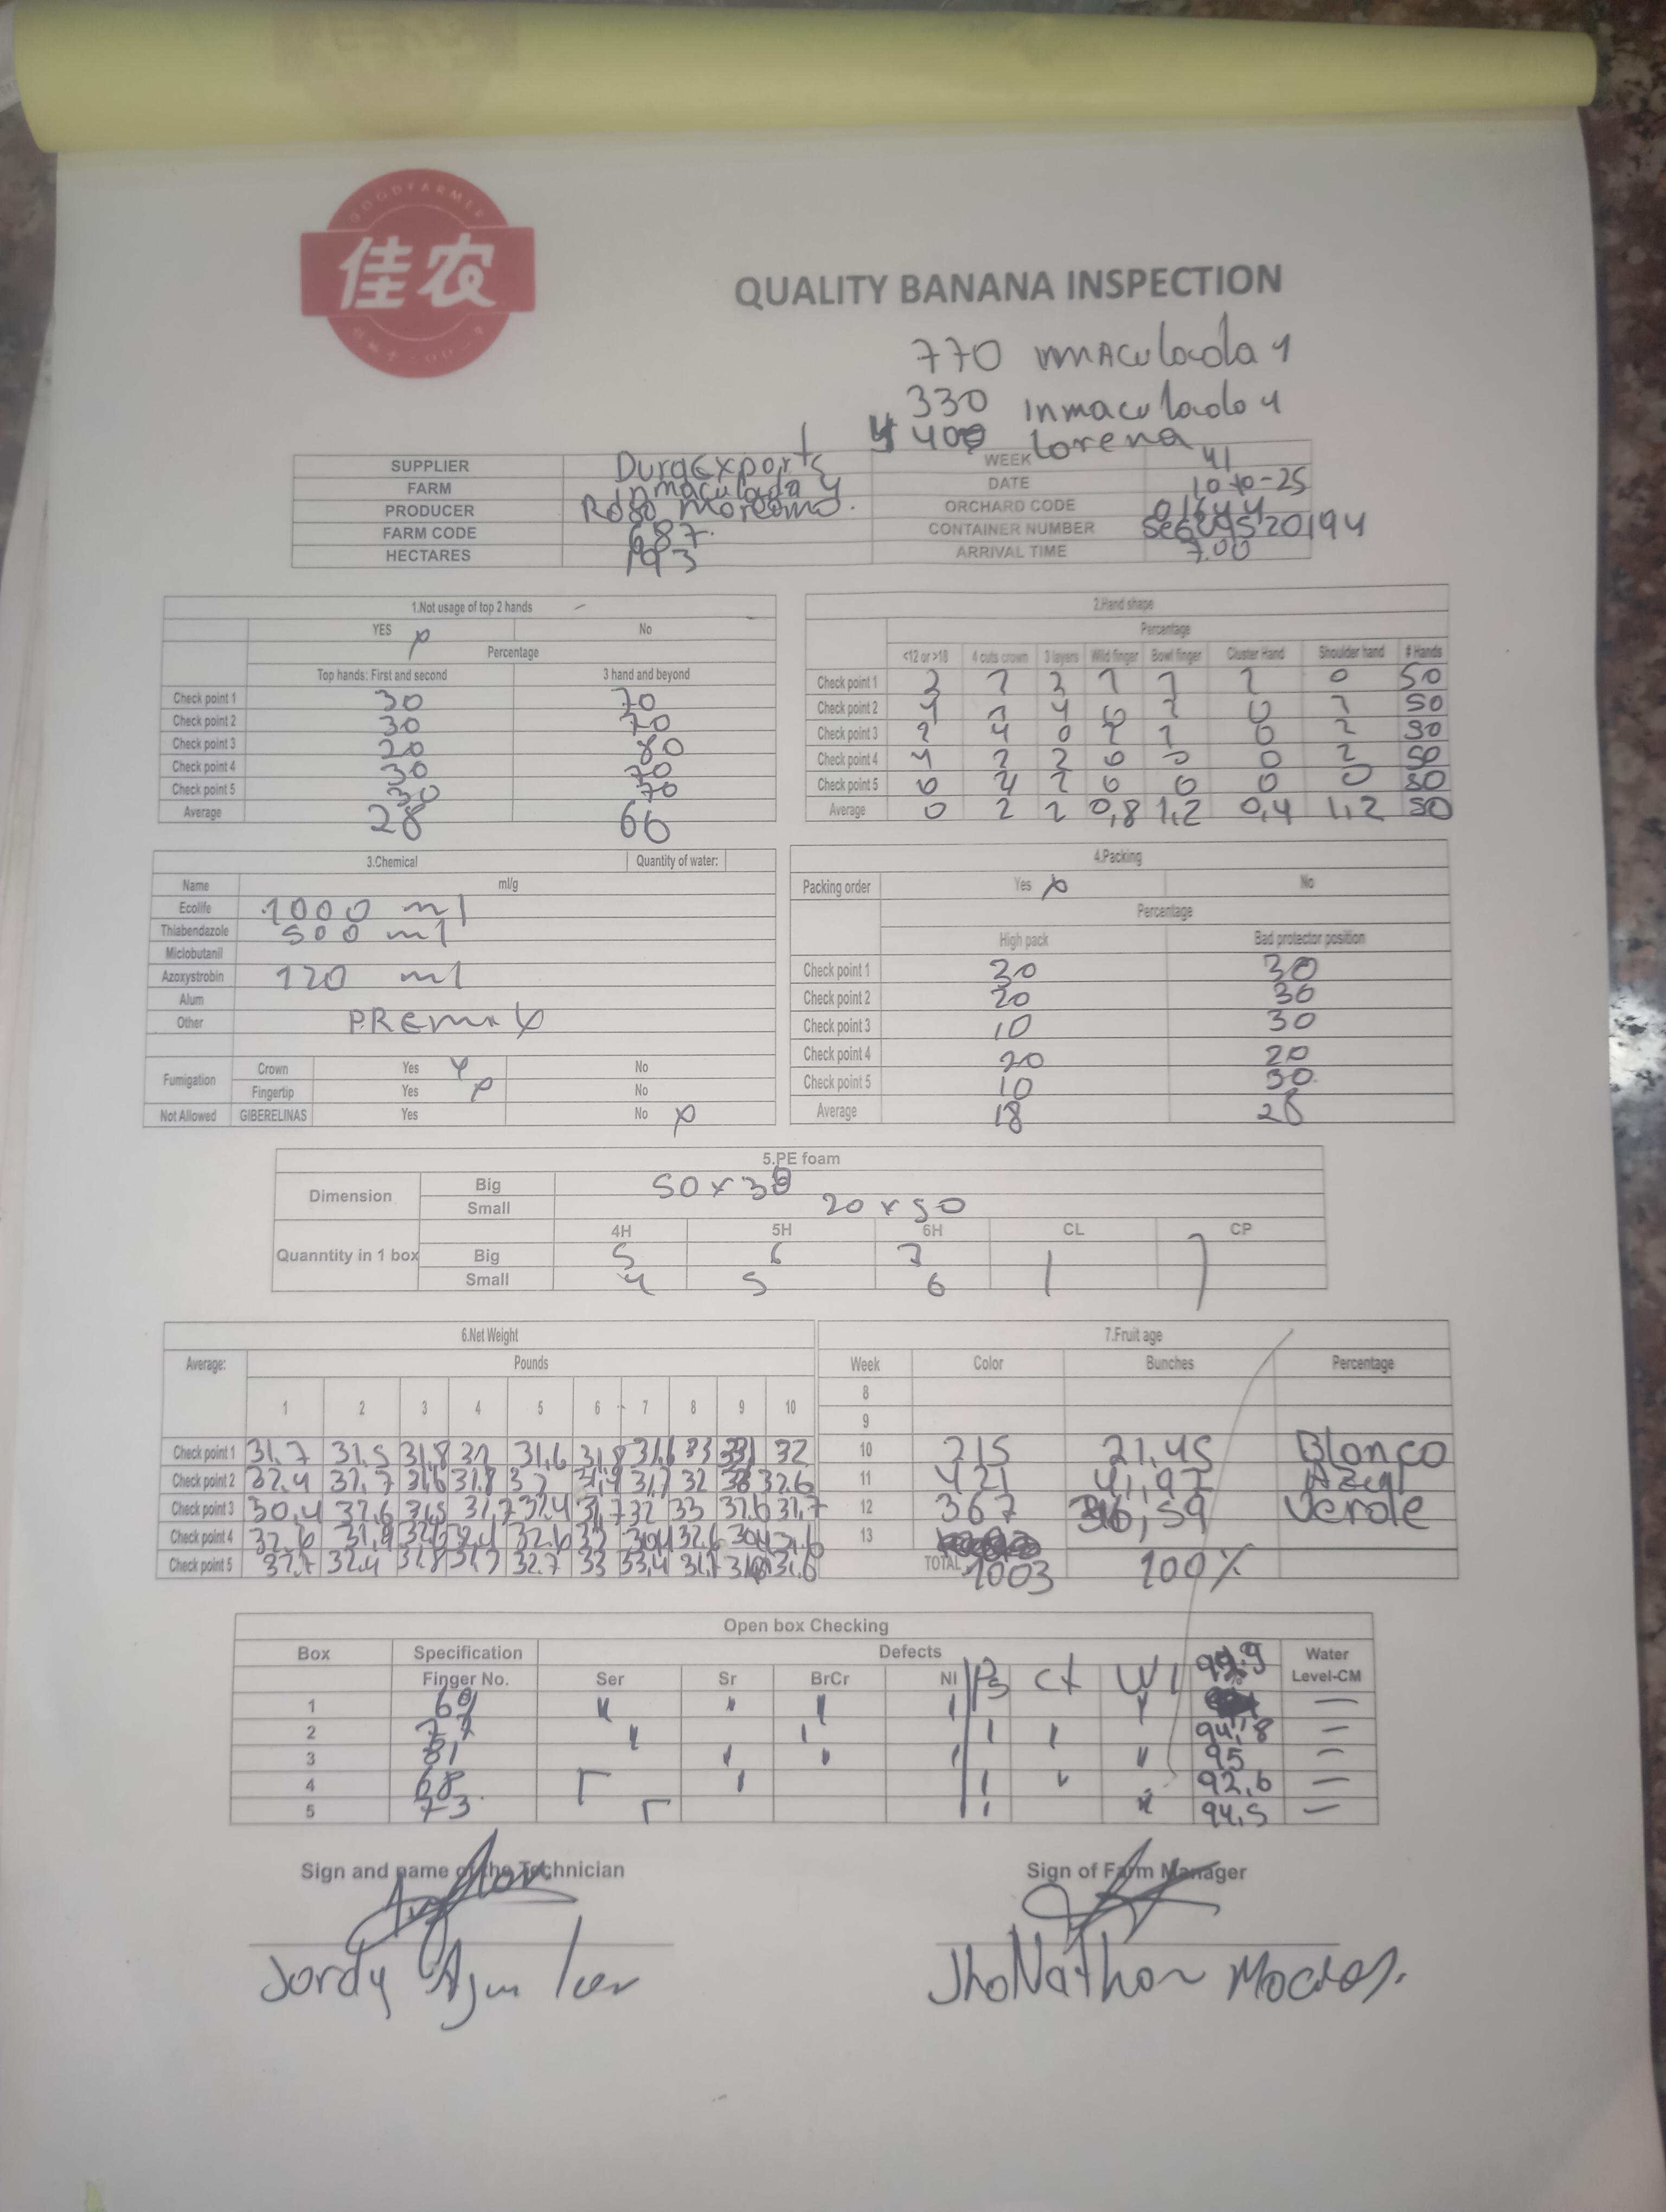 GOODFARMER
佳农
QUALITY BANANA INSPECTION
770 inmaculada 4
330 inmaculada 4
400 Lorena
SUPPLIER Durexports WEEK 41
FARM Inmaculada 4 DATE 10-10-25
PRODUCER ORCHARD CODE 01644
FARM CODE 687. CONTAINER NUMBER
HECTARES 193 ARRIVAL TIME 7.00
1.Not usage of top 2 hands
YES x No
Percentage
Top hands: First and second 3 hand and beyond
Check point 1 30 70
Check point 2 30 70
Check point 3 20 80
Check point 4 30 70
Check point 5 30 70
Average 28 66
2.Hand shape
Percentage
<12 or >18 4 cuts crown 3 layers Wild finger Bowl finger Cluster Hand Shoulder hand # Hands
Check point 1 0 50
Check point 2 4 4 0 50
Check point 3 2 4 0 0 2 50
Check point 4 4 2 2 0 0 0 2 50
Check point 5 0 0 0 0 0 50
Average 0 2 2 0,8 1,2 0,4 1,2 50
3.Chemical Quantity of water:
Name ml/g
Ecolife 1000 ml
Thiabendazole 500 ml
Miclobutanil
Azoxystrobin 120 ml
Alum
Other PREmix
Fumigation Crown Yes x No
Fingertip Yes x No
Not Allowed GIBERELINAS Yes No x
4.Packing
Packing order Yes x No
Percentage
High pack Bad protector position
Check point 1 30 30
Check point 2 20 30
Check point 3 10 30
Check point 4 20 20
Check point 5 10 30
Average 18 28
5.PE foam
Dimension Big 50 x 38
Small 20 x 50
4H 5H 6H CL CP
Quanntity in 1 box Big 5 6 7
Small 4 5 6
6.Net Weight
Average: Pounds
1 2 3 4 5 6 7 8 9 10
Check point 1 31,7 31,5 31,8 32 31,6 31,8 31,6 33 32
Check point 2 32,4 32,7 31,6 31,8 32 31,7 32 32,6
Check point 3 30,4 32,6 31,5 31,7 32,4 31,7 32 33 32,6 31,7
Check point 4 32,6 31,9 32,6 32,4 32,6 32 30,4 32,6 30,4 31,6
Check point 5 32,7 32,4 31,8 31,7 32,7 33 33,4 31,7 31,6
7.Fruit age
Week Color Bunches Percentage
8
9
10 215 21,45 Blanco
11 421 41,97 Azul
12 367 36,59 Verde
13
TOTAL 1003 100%
Open box Checking
Box Specification Defects Water
Finger No. Ser Sr BrCr NI Ps Ct WI % Level-CM
1 69
2 94,8
3 81 95
4 68 92,6
5 73 94,5
Sign and name of the Technician Sign of Farm Manager
Jordy Aguilar Jhonathon Macias.